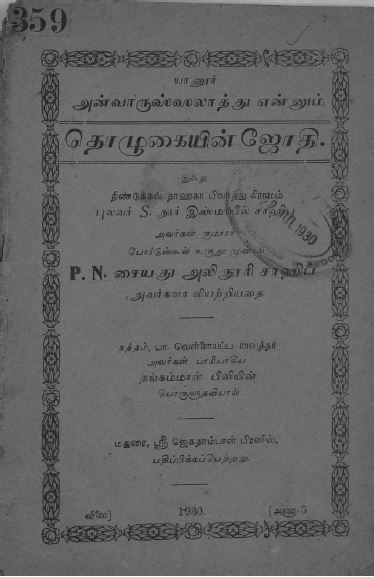 359
யானூர்
அன்வாருஸ்ஸலாத்து என்னும்
தொழுகையின் ஜோதி.
இஃது
திண்டுக்கல் தாலூகா
கிராமம்
புலவர் S. நூர் இஸ்மாயீல் சாஹிபு
அவர்கள் குமாரர்
போர்டுஸ்கூல் உருது முன்ஷி
P. N. சையது அலி நூரி சாஹிப்
அவர்களா லியற்றியதை
1930
பா. வெள்ளையப்ப ராவுத்தர்
அவர்கள் பாரியாகிய
தங்கம்மாள் பீவியின்
பொருளுதவியால்
மதுரை, ஸ்ரீ ஜெகதாம்பாள் பிரஸில்,
பதிப்பிக்கப்பெற்றது
விலை] 1930. [அணா-5